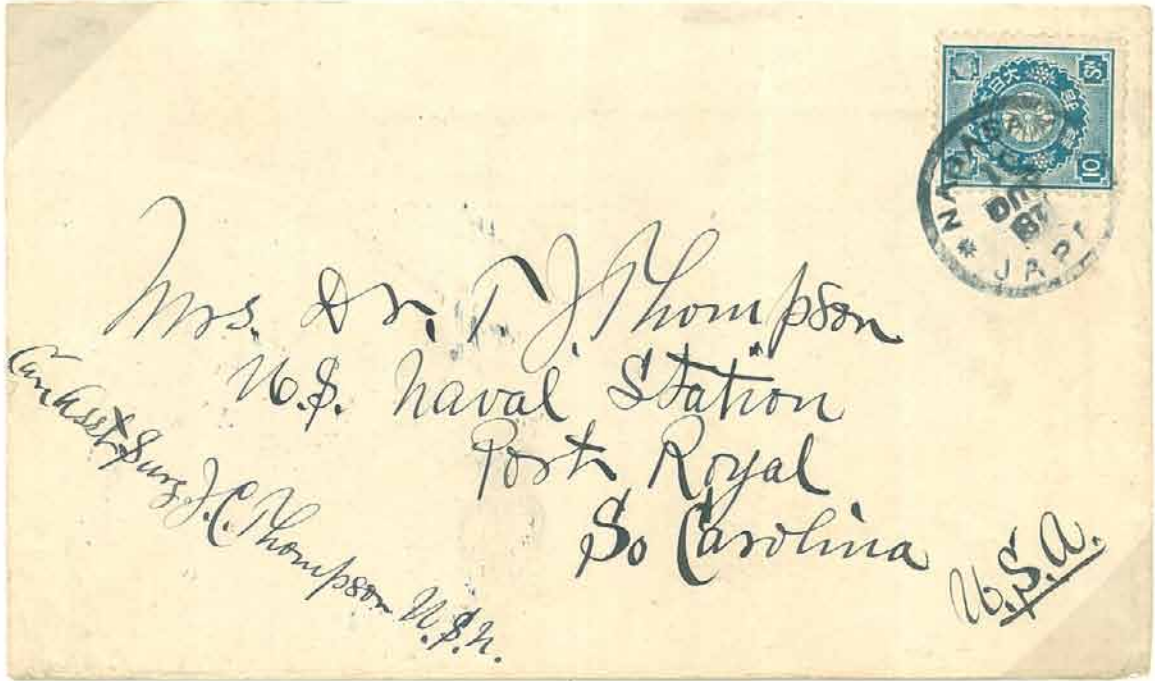 大日
郵
Sn
10
NAGASAKI
JAPA
Mrs. Dr. T. J. Thompson
U.S. Naval Station
Port Royal
So Carolina
U.S.A.
Asst. Surg J. C. Thompson U.S.N.